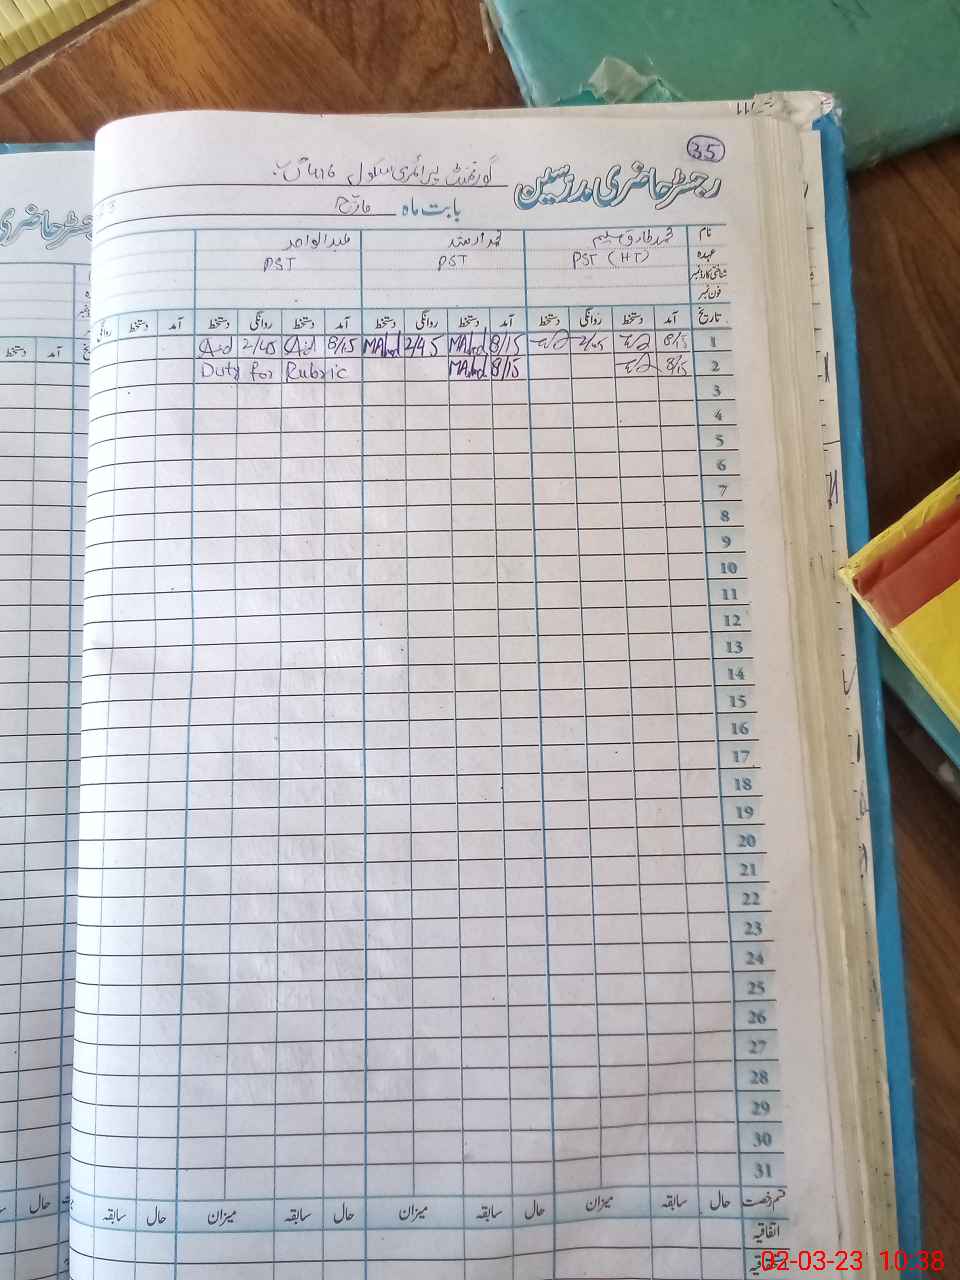 35
رجسٹر حاضری مدرسین گورنمنٹ پرائمری سکول 416
بابت ماہ مارچ
نام محمد طارق سلیم محمد ارشد عبدالواحد
عہدہ PST (HT) PST PST
شناختی کارڈ نمبر
فون نمبر
تاریخ آمد دستخط روانگی دستخط آمد دستخط روانگی دستخط آمد دستخط روانگی دستخط آمد دستخط روانگی
1 8/15 2/45 8/15 2/45 8/15 2/45
2 8/15 8/15 Duty for Rubric
3
4
5
6
7
8
9
10
11
12
13
14
15
16
17
18
19
20
21
22
23
24
25
26
27
28
29
30
31
قسم رخصت حال سابقہ میزان حال سابقہ میزان حال سابقہ میزان حال سابقہ
اتفاقیہ
02-03-23 10:38